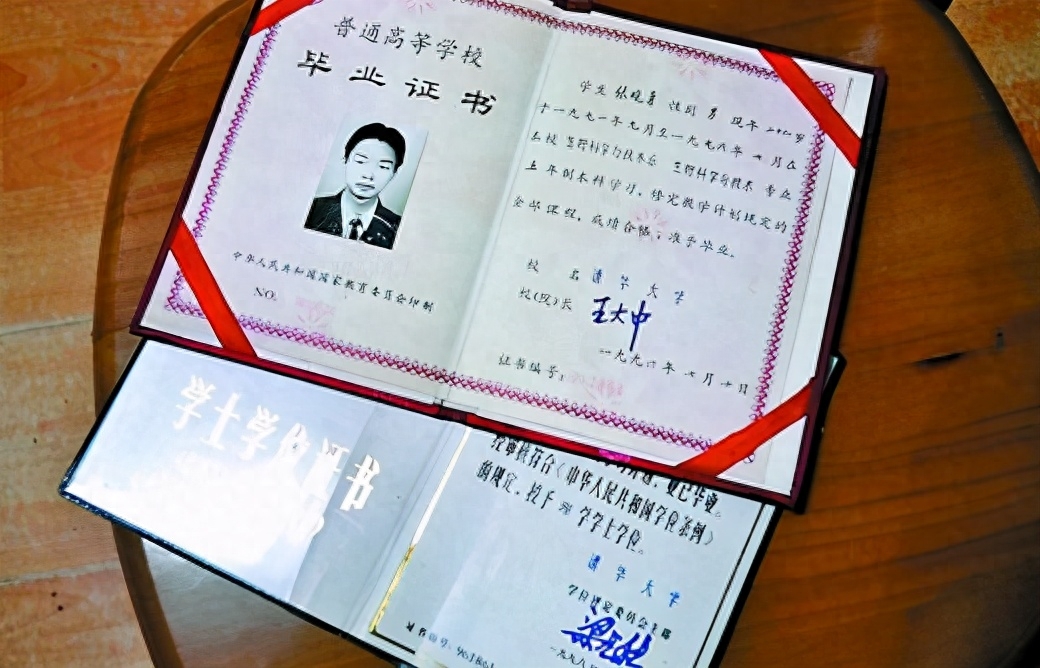 普通高等学校
毕业证书
中华人民共和国国家教育委员会印制
NO.
学生 张晓勇 性别 男 现年 二十二岁
于一九九一年九月至一九九六年七月在
本校 与技术系 专业
五年制本科学习，修完教学计划规定的
全部课程，成绩合格，准予毕业。
校 名 清华大学
校(院)长 王大中
一九九六年七月十日
证书编号：
学士学位证书
业已毕业。
经审核符合《中华人民共和国学位条例》
的规定，授予 学学士学位。
清华大学
学位评定委员会主席
证书编号:961861
一九九